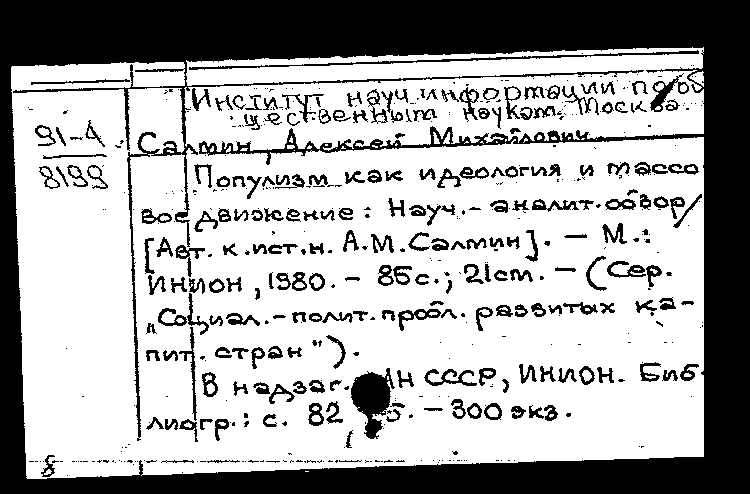 Институт науч. информации по об
щественным наукам. Москва.
91-4
8199
Салмин, Алексей Михайлович
Популизм как идеология и массо
вое движение: Науч.-аналит. обзор/
[Авт. к.ист.н. А.М. Салмин]. — М.:
ИНИОН, 1980. - 85 с.; 21 см. — (Сер.
„Социал.-полит. пробл. развитых ка-
пит. стран").
В надзаг.: АН СССР, ИНИОН. Биб-
лиогр.: с. 82 5. — 300 экз.
б